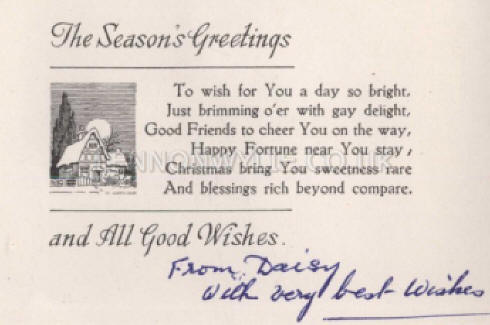 The Season's Greetings
To wish for You a day so bright,
Just brimming o'er with gay delight,
Good Friends to cheer You on the way,
Happy Fortune near You stay,
Christmas bring You sweetness rare
And blessings rich beyond compare.
and All Good Wishes.
From, Daisy
With very best Wishes